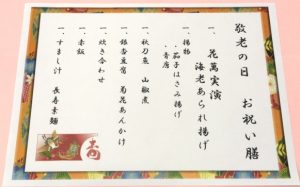 敬老の日　お祝い膳
一、花萬実演
海老あられ揚げ
一、揚物
・茄子はさみ揚げ
・青唐
一、秋刀魚　山椒煮
一、銀杏豆腐　菊花あんかけ
一、炊き合わせ
一、赤飯
一、すまし汁　長寿素麺
寿